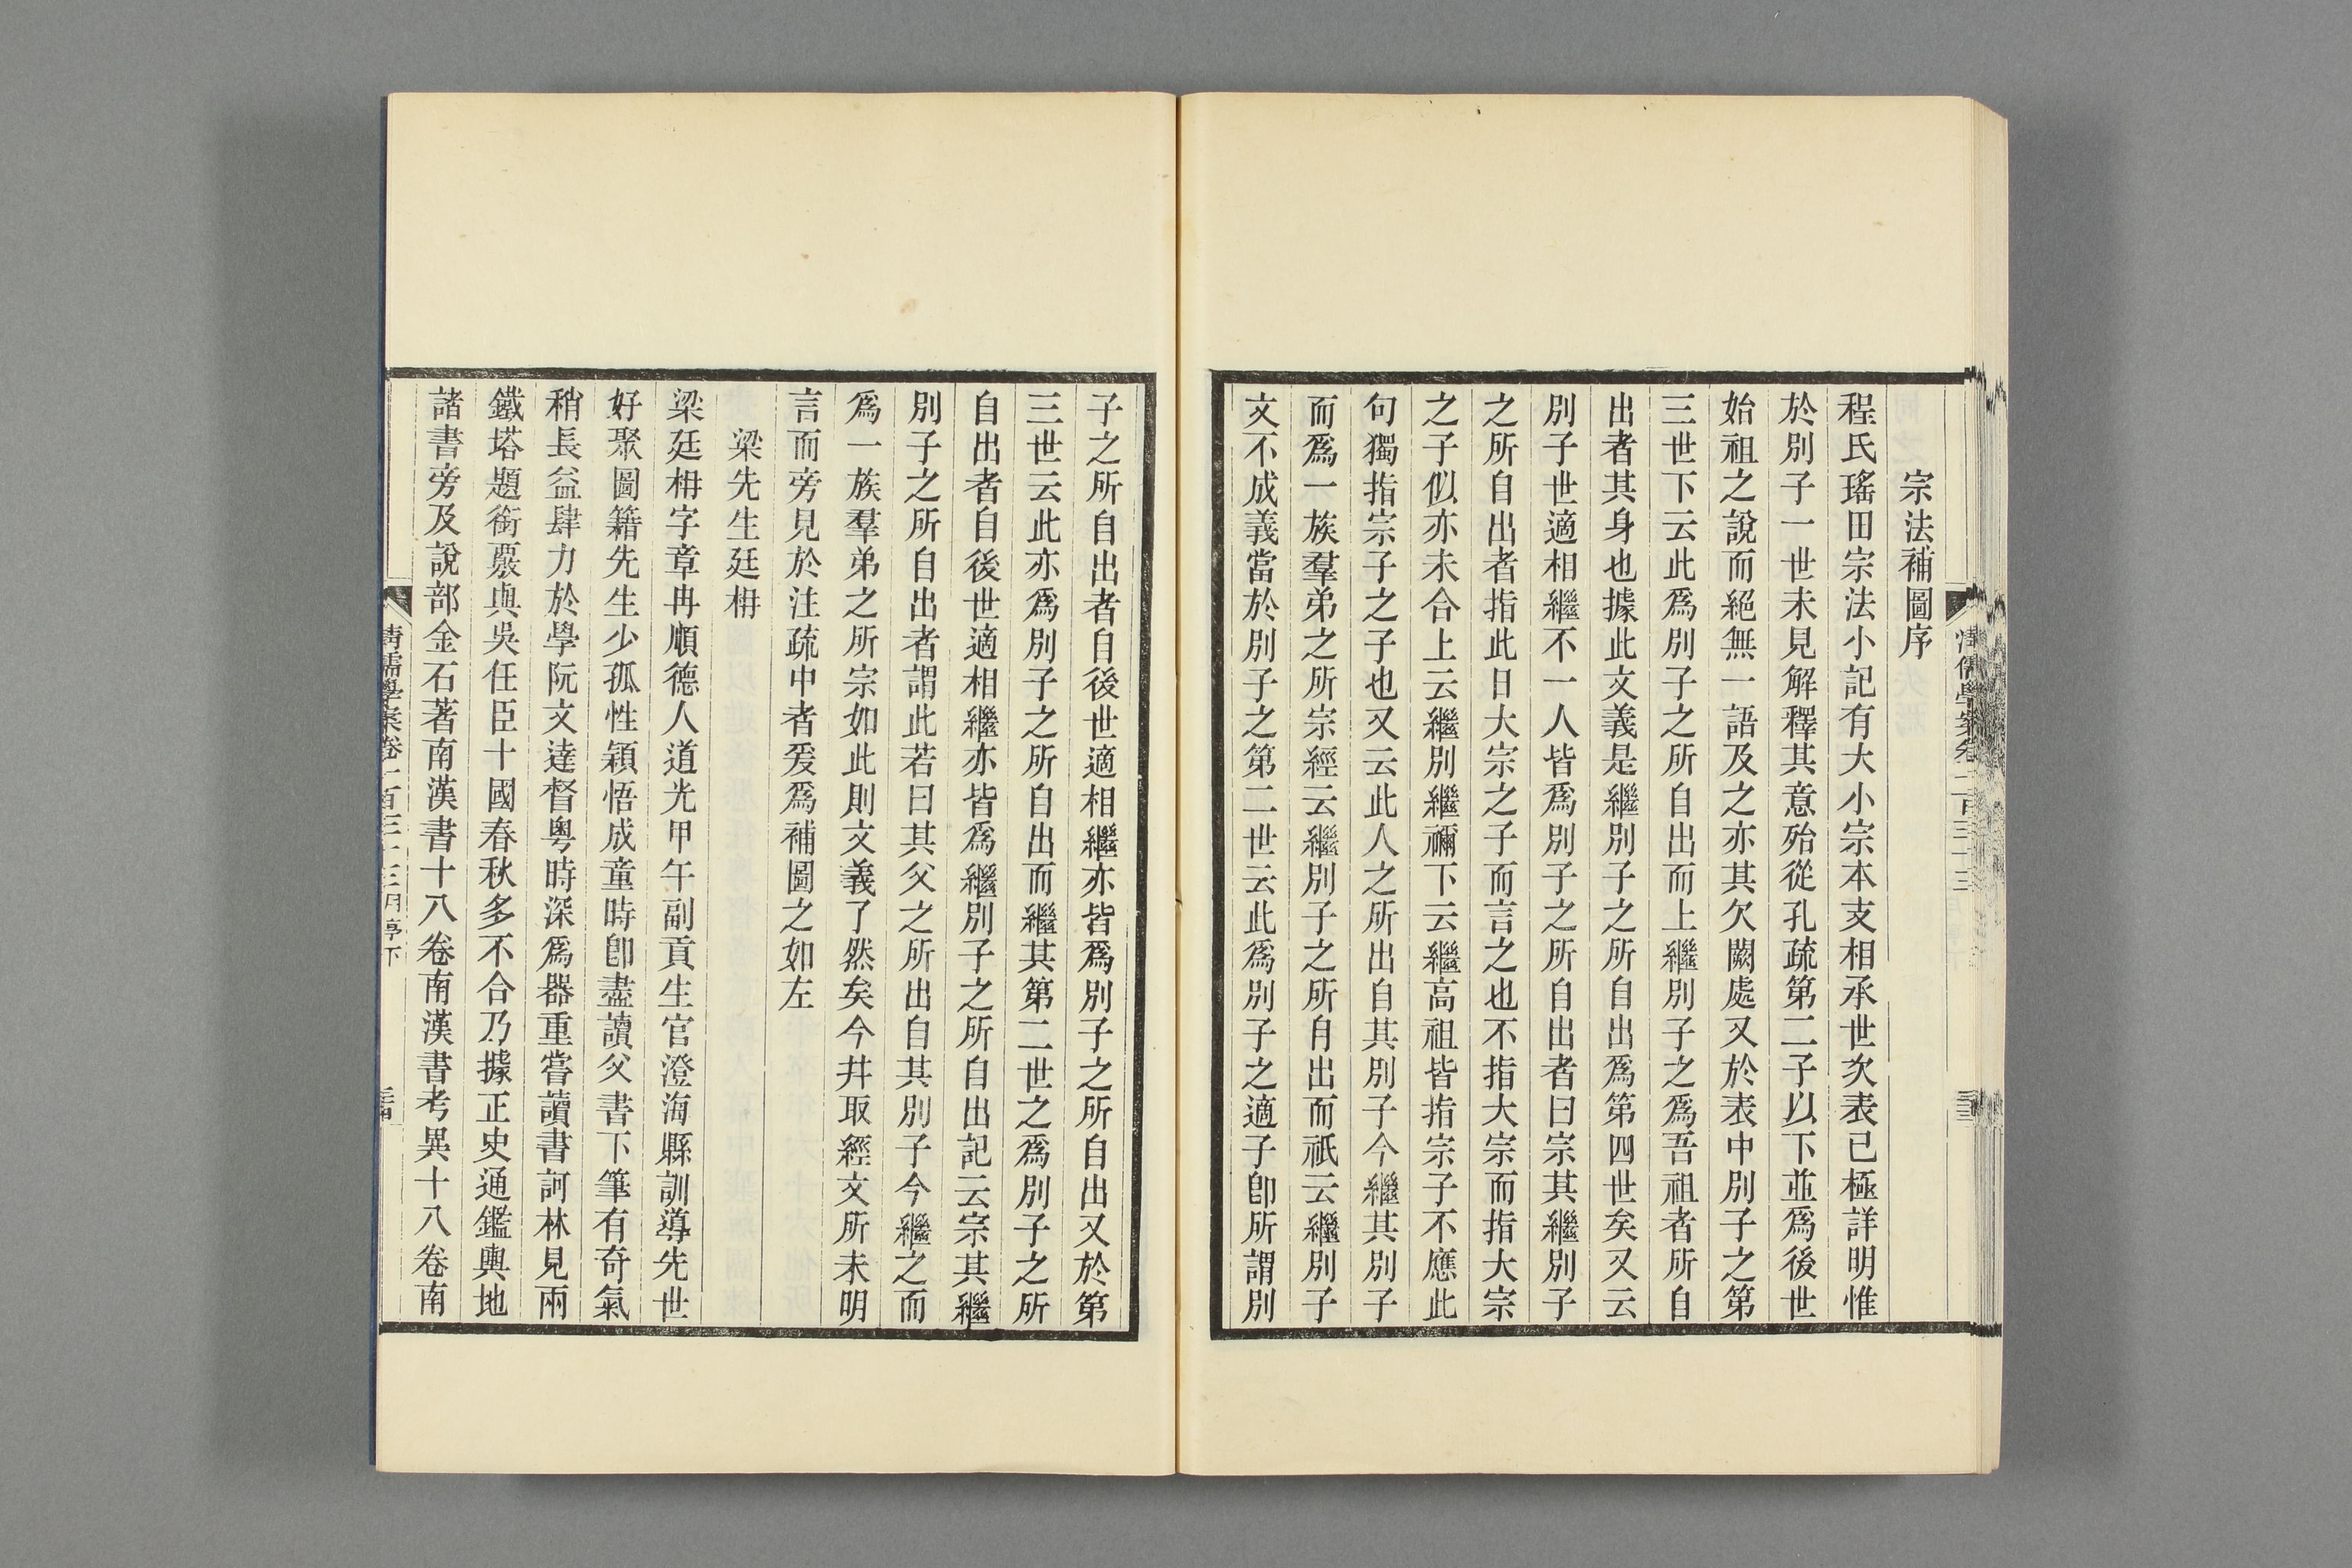 宗法補圖序
程氏瑤田宗法小記有大小宗本支相承世次表已極詳明惟
於別子一世未見解釋其意殆從孔疏第二子以下並爲後世
始祖之說而絕無一語及之亦其欠闕處又於表中別子之第
三世下云此爲別子之所自出而上繼別子之爲吾祖者所自
出者其身也據此文義是繼別子之所自出爲第四世矣又云
別子世適相繼不一人皆爲別子之所自出者曰宗其繼別子
之所自出者指此日大宗之子而言之也不指大宗而指大宗
之子似亦未合上云繼別繼禰下云繼高祖皆指宗子不應此
句獨指宗子之子也又云此人之所出自其別子今繼其別子
而爲一族羣弟之所宗經云繼別子之所自出而祇云繼別子
文不成義當於別子之第二世云此爲別子之適子卽所謂別
子之所自出者自後世適相繼亦皆爲別子之所自出又於第
三世云此亦爲別子之所自出而繼其第二世之爲別子之所
自出者自後世適相繼亦皆爲繼別子之所自出記云宗其繼
別子之所自出者謂此若曰其父之所出自其別子今繼之而
爲一族羣弟之所宗如此則文義了然矣今幷取經文所未明
言而旁見於注疏中者爰爲補圖之如左
梁先生廷枏
梁廷枏字章冉順德人道光甲午副貢生官澄海縣訓導先世
好聚圖籍先生少孤性穎悟成童時卽盡讀父書下筆有奇氣
稍長益肆力於學阮文達督粵時深爲器重嘗讀書訶林見兩
鐵塔題銜覈與吳任臣十國春秋多不合乃據正史通鑑輿地
諸書旁及說部金石著南漢書十八卷南漢書考異十八卷南
清儒學案卷一百三十三月亭下